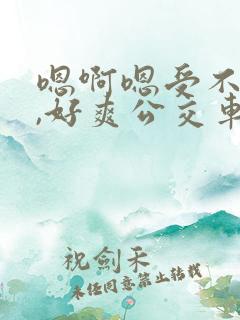 嗯啊嗯受不
,好爽公交车
祝剑禾
未经同意禁止转载